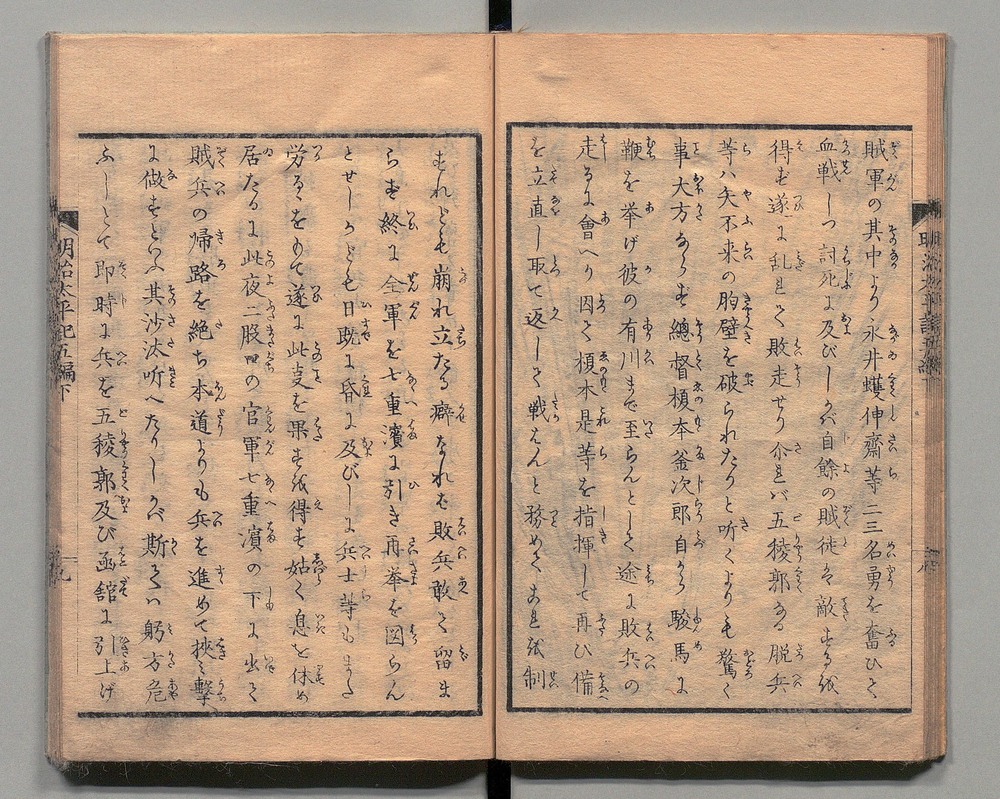 賊軍の其中より永井蠖伸齋等二三名勇を奮ひて
血戰しつ討死に及びしかバ自餘の賊徒ハ敵する能
得ず遂に乱れて敗走せり介れバ五稜郭なる脱兵
等ハ矢不来の胸壁を破られたりと听くよりも驚く
事大方ならず總督榎本釜次郎自から駿馬に
鞭を挙げ彼の有川まで至らんとして途に敗兵の
走るに會へり因て榎本是等を指揮して再ひ備
を立直し取て返して戦はんと務めておれ共制
すれども崩れ立たる癖なれば敗兵敢て留ま
らず終に全軍を七重濱に引き再挙を図らん
とせしかども日既に昏に及びしに兵士等もまた
労るゝをもて遂に此事を果す能得ず姑く息を休め
居たるに此夜二股口の官軍七重濱の下に出て
賊兵の帰路を絶ち本道よりも兵を進めて挾ミ撃
に做すといふ其沙汰听へたりしかバ斯てハ躬方危
ふしとて即時に兵を五稜郭及び函館に引上げ
明治太平記五編下